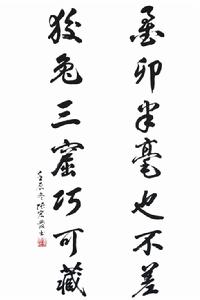 墨卯半毫也不差
狡兔三窟巧可藏